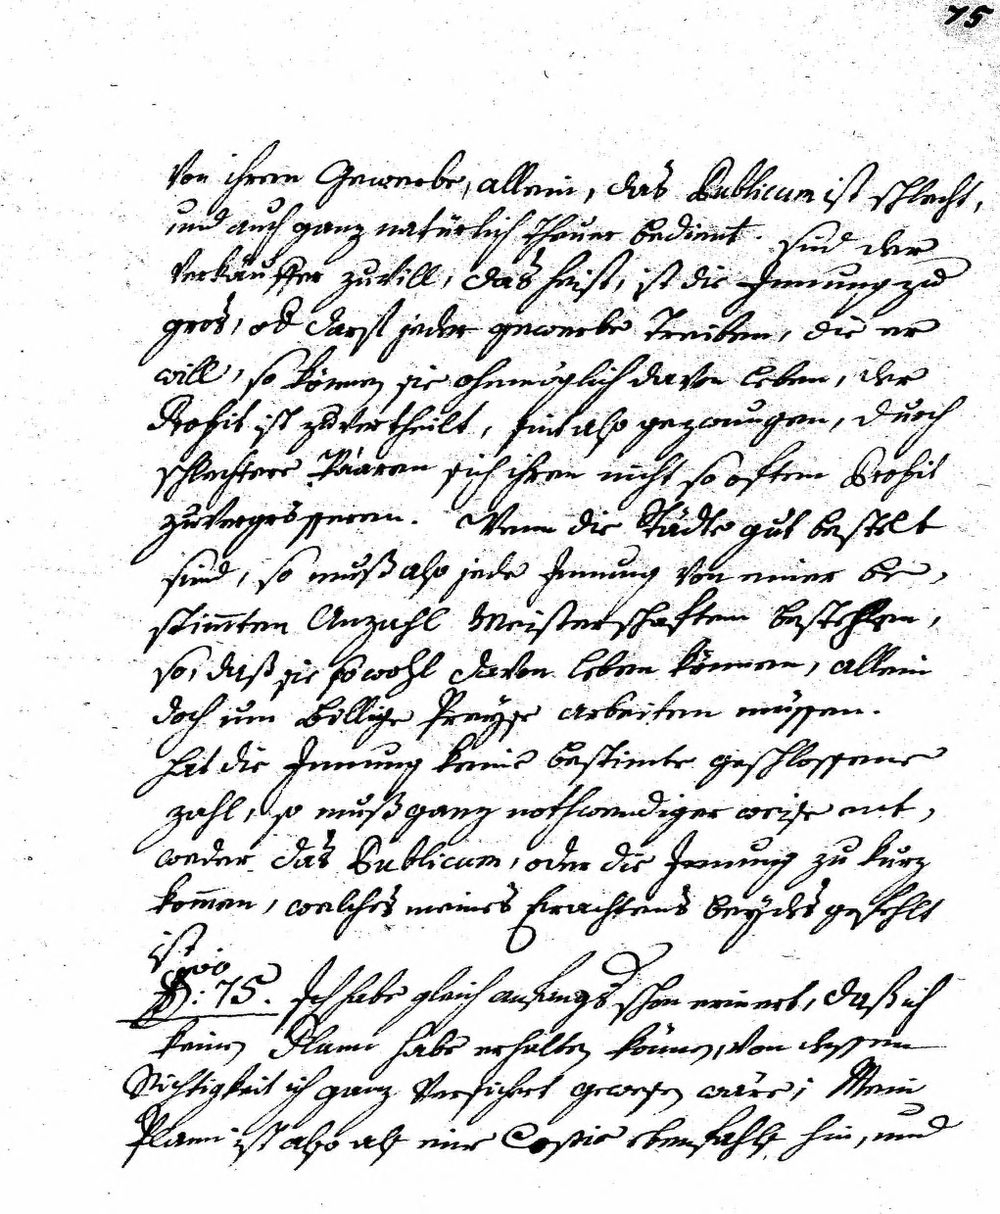 75
Von ihrem Gewerbe, allein, das Publicum ist schlecht,
und auch ganz natürlich theuer bedient. sind der
Verkäuffer zuvill, das heist, ist die Innung zu
gros, od darf jeder gewerbe treiben, die er
will, so können sie ohnmöglich davon leben, der
Profit ist zuvertheilt, sind also gezwungen, durch
schlechtere Waaren sich ihren nicht so oftern Profit
zuvergrösseren. Wenn die Städte gut bestelt
sind, so muß also jede Innung von einer be,
stimten Anzahl Meisterschaften bestehen,
so, daß sie sowohl davon leben können, allein
doch um billige Preyse arbeiten müssen.
hat die Innung keine bestimte geschlossene
zahl, so muß ganz nothwendiger weise ent,
weder das Publicum, oder die Innung zu kurz
kommen, welches meines Erachtens beydes gefehlt
ist.
§: 75. Ich habe gleich anfangs schon erinert, daß ich
keinen Plann habe erhalten können, von dessen
Richtigkeit ich ganz versichert gewesen wäre; Mein
Plann ist also als eine Copie ebenfahls hin, und